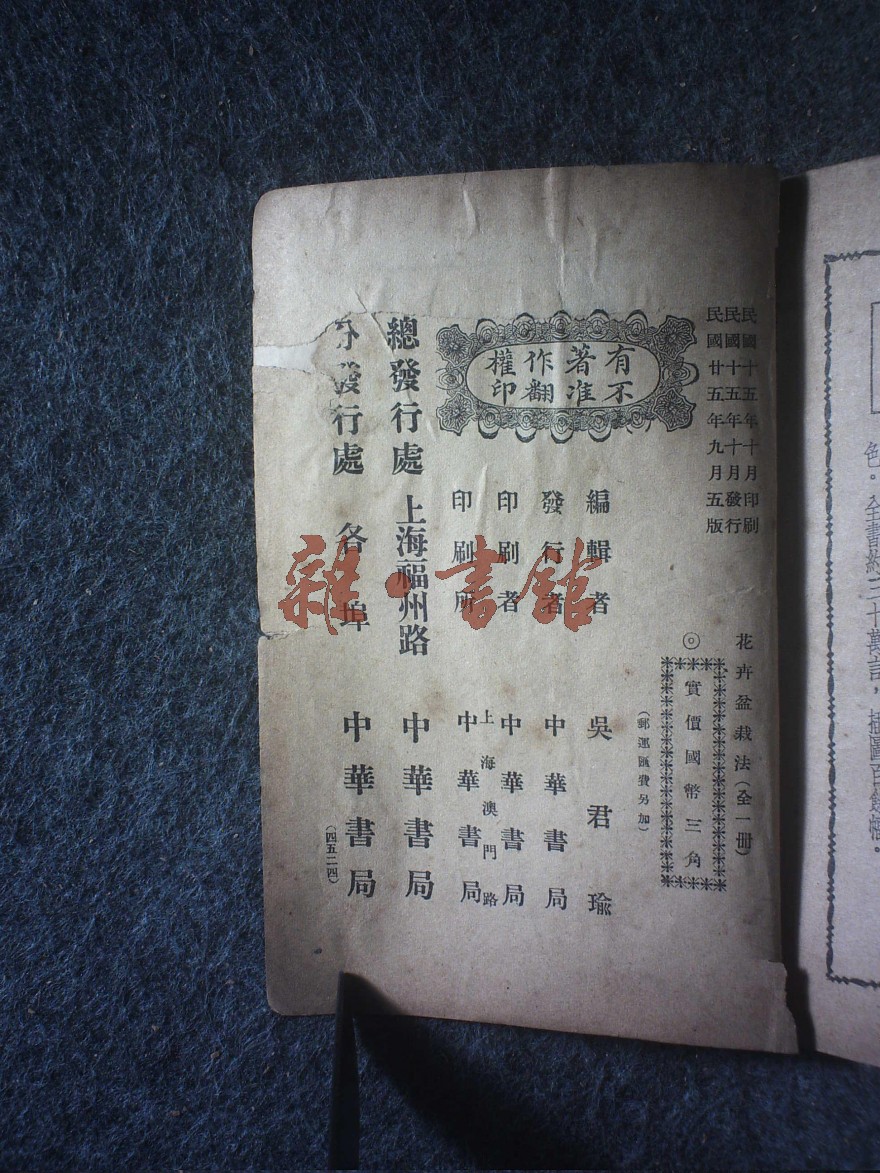 民國十五年十月印刷
民國十五年十月發行
民國廿五年九月五版
花卉盆栽法(全一册)
◎
實價國幣三角
(郵運匯費另加)
有著作權
不准翻印
編輯者 吳君瑜
發行者 中華書局
印刷者 中華書局
上海澳門路
印刷所 中華書局
總發行處 上海福州路 中華書局
分發行處 各埠 中華書局
(四五二四)
雜·書館